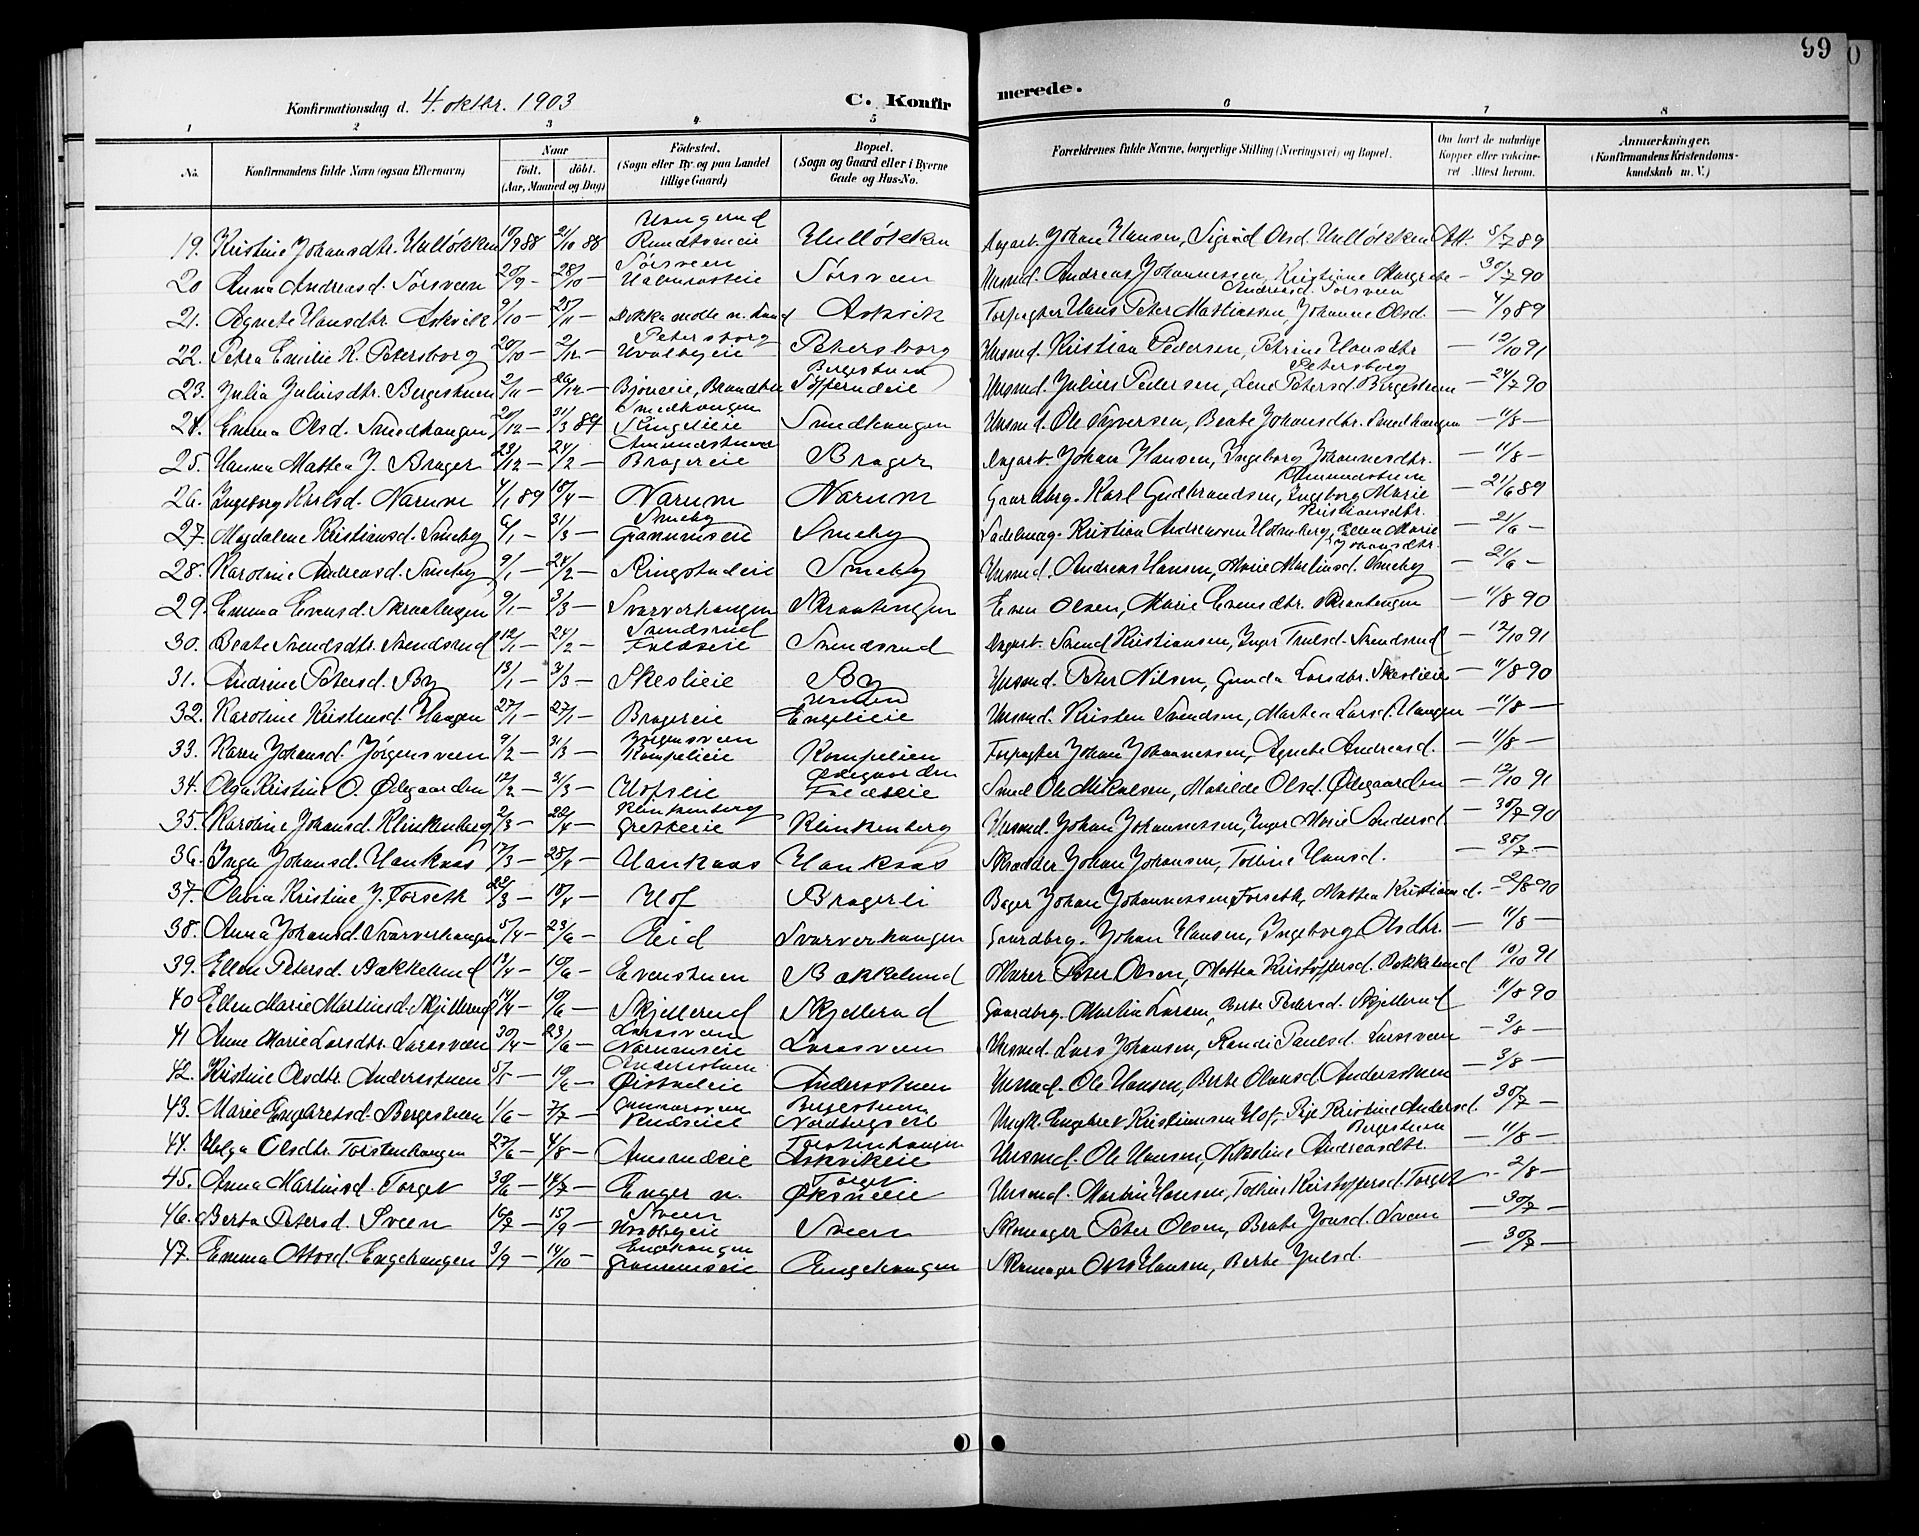 99
Konfirmationsdag d. 4. oktbr. 1903
C. Konfirmerede.
1 2 3 4 5 6 7 8
No. Konfirmandens fulde Navn (ogsaa Efternavn) Naar født. døbt. (Aar, Maaned og Dag) Fødested. (Sogn eller By og paa Landet tillige Gaard) Bopæl. (Sogn og Gaard eller i Byerne Gade og Hus-No. Forældrenes fulde Navne, borgerlige Stilling (Næringsvei) og Bopæl. Om havt de naturlige Kopper eller vakcineret Attest herom. Anmærkninger. (Konfirmandens Kristendomskundskab m. V.)
19. Kristine Johansdtr. Hulløkken 10/9 88 21/10 88 Haugerud Hulløkken Dagarb. Johan Hansen, Sigrid Olsd. Hulløkken Att. 5/7 89
20 Anna Andreasd. Sørsveen 20/9 — 28/10 — Sørsveen Sørsveen Husmd. Andreas Johannessen, Kristiane Margrete Andreasd. Sørsveen — 30/7 90
21. Agnete Hansdtr. Askvik 9/10 — 25/11 — Askvik Forpagter Hans Peter Mathiassen, Johanne Olsd. — 4/9 89
22. Petra Emilie K. Petersborg 20/10 — 2/12 — Petersborg Hvalbyeie Petersborg Husmd. Kristian Pedersen, Petrine Hansdtr Petersborg — 12/10 91
23. Julia Juliusdtr. Bergestuen 2/11 — 26/12 — Bergestuen Husmd. Julius Pedersen, Lene Petersd. Bergestuen — 24/7 90
24. Emma Olsd. Smedhaugen 20/12 — 31/3 89 Smedhaugen Smedhaugen Husmd. Ole Syversen, Beate Johansdtr. Smedhaugen — 11/8 —
25. Hanna Mathea J. Brager 23/12 — 24/2 — Amundstuen Bragereie Brager Dagarb. Johan Hansen, Ingeborg Johannesdtr. Amundstuen — 11/8 —
26. Ingeborg Karlsd. Narum 4/1 89 18/4 — Narum Narum Gaardbrg. Karl Gudbrandsen, Ingeborg Marie Kristiansdtr. — 21/6 89
27. Magdalene Kristiansd. Smeby 6/1 — 31/3 — Smeby Smeby Sadelmag. Kristian Andreassen Holmberg, Ellen Marie Johansdtr. — 21/6 —
28. Karoline Andreasd. Smeby 9/1 — 24/2 — Ringstadeie Smeby Husmd. Andreas Hansen, Marie Martinsd. Smeby — 21/6 —
29. Emma Evensd. Skraahaugen 9/1 — 3/3 — Svarverhaugen Skraahaugen Even Olsen, Marie Evensdtr. Skraahaugen — 11/8 90
30. Beate Svendsdtr. Svendsrud 12/1 — 24/2 — Svendsrud Svendsrud Dagarb. Svend Kristiansen, Inger Trulsd. Svendsrud — 12/10 91
31. Andrine Petersd. By 13/1 — 31/3 — Skeslieie By Husmd. Peter Nilsen, Gunda Larsdtr. Skeslieie — 11/8 90
32. Karoline Kristensd. Haugen 27/1 — 27/1 — Bragereie Haugen Engelieie Husmd. Kristen Svendsen, Marthea Larsd. Haugen — 11/8 —
33. Karen Johansd. Jørgensveen 9/2 — 31/3 — Jørgensveen Kompelieie Kompelien Forpagter Johan Johannessen, Agnete Andreasd. — 11/8 —
34. Olga Kristine O. Ødegaarden 12/2 — 31/3 — Hofseie Ødegaarden Smed Ole Mikalsen, Matilde Olsd. Ødegaarden — 12/10 91
35. Karoline Johansd. Klinkenberg 2/3 — 22/4 — Klinkenberg Klinkenberg Husmd. Johan Johannessen, Inger Marie Andersd. — 30/7 90
36. Inga Johansd. Haukaas 17/3 — 28/4 — Haukaas Haukaas Skrædder Johan Johansen, Tolline Hansd. — 30/7 —
37. Olivia Kristine J. Forseth 22/3 — 10/4 — Hof Bragerli Bager Johan Johannessen Forseth, Mathea Kristiansd. — 2/8 90
38. Anna Johansd. Svarverhaugen 5/4 — 23/6 — Eid Svarverhaugen Gaardbrg. Johan Hansen, Ingeborg Olsdtr. — 11/8 —
39. Ellen Petersd. Bakkelund 13/4 — 10/6 — Evenstuen Bakkelund Murer Peter Olsen, Mathea Kristoffersd. Bakkelund — 10/10 91
40 Ellen Marie Martinsd. Skjellerud 14/4 — 10/6 — Skjellerud Skjellerud Gaardbrg. Martin Larsen, Berte Pedersd. Skjellerud — 11/8 90
41 Anne Marie Larsdtr. Larasveen 30/4 — 23/6 — Larasveen Larasveen Husmd. Lars Johansen, Randi Paulsd. Larasveen — 3/8 —
42. Kristine Olsdtr. Andersstuen 5/5 — 10/6 — Andersstuen Andersstuen Husmd. Ole Hansen, Berte Olsd. Andersstuen — 3/8 —
43. Marie Engbretsd. Bergestuen 1/6 — 7/7 — Bergestuen Nordbergseie Engebret Kristiansen Hof, Kristine Andersd. Bergestuen — 30/7 —
44. Helga Olsdtr. Torstenhaugen 27/6 — 4/8 — Amundeie Torstenhaugen Askvikeie Husmd. Ole Hansen, Nikoline Andreasdtr. — 11/8 —
45. Anna Martinsd. Torget 30/6 — 14/7 — Enger n. Torget Husmd. Martin Hansen, Tolline Kristoffersd. Torget — 2/8 —
46. Berta Petersd. Sveen 16/7 — 15/9 — Sveen Hvalbyeie Sveen Skomager Peter Olsen, Beate Jonsd. Sveen — 30/7 —
47. Emma Ottosd. Engehaugen 3/9 — 14/10 — Engehaugen Engehaugen Skomager Otto Hansen, Berte Julsd. — 30/7 —